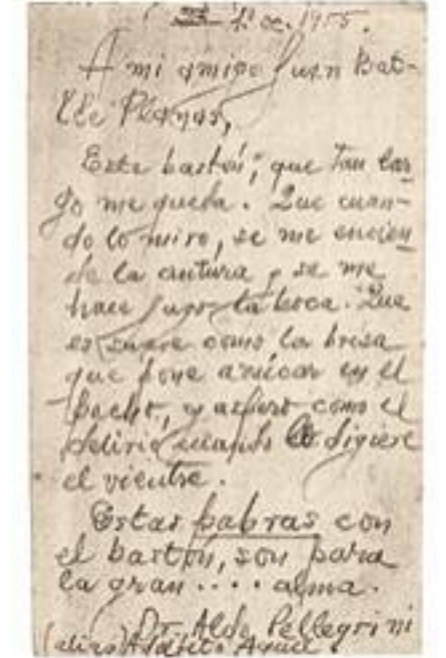 1955.
A mi amigo Juan Bat-
lle Planas,
Este bastón, que tan lar
go me queda. Que cuan-
do lo miro, se me encien
de la cintura y se me
hace jugo la boca. Que
es suave como la brisa
que pone azúcar en el
pecho, y áspero como el
delirio cuando lo digiere
el vientre.
Estas pabras con
el bastón, son para
la gran .... alma.
Dr. Aldo Pellegrini
(alias) Adolfito